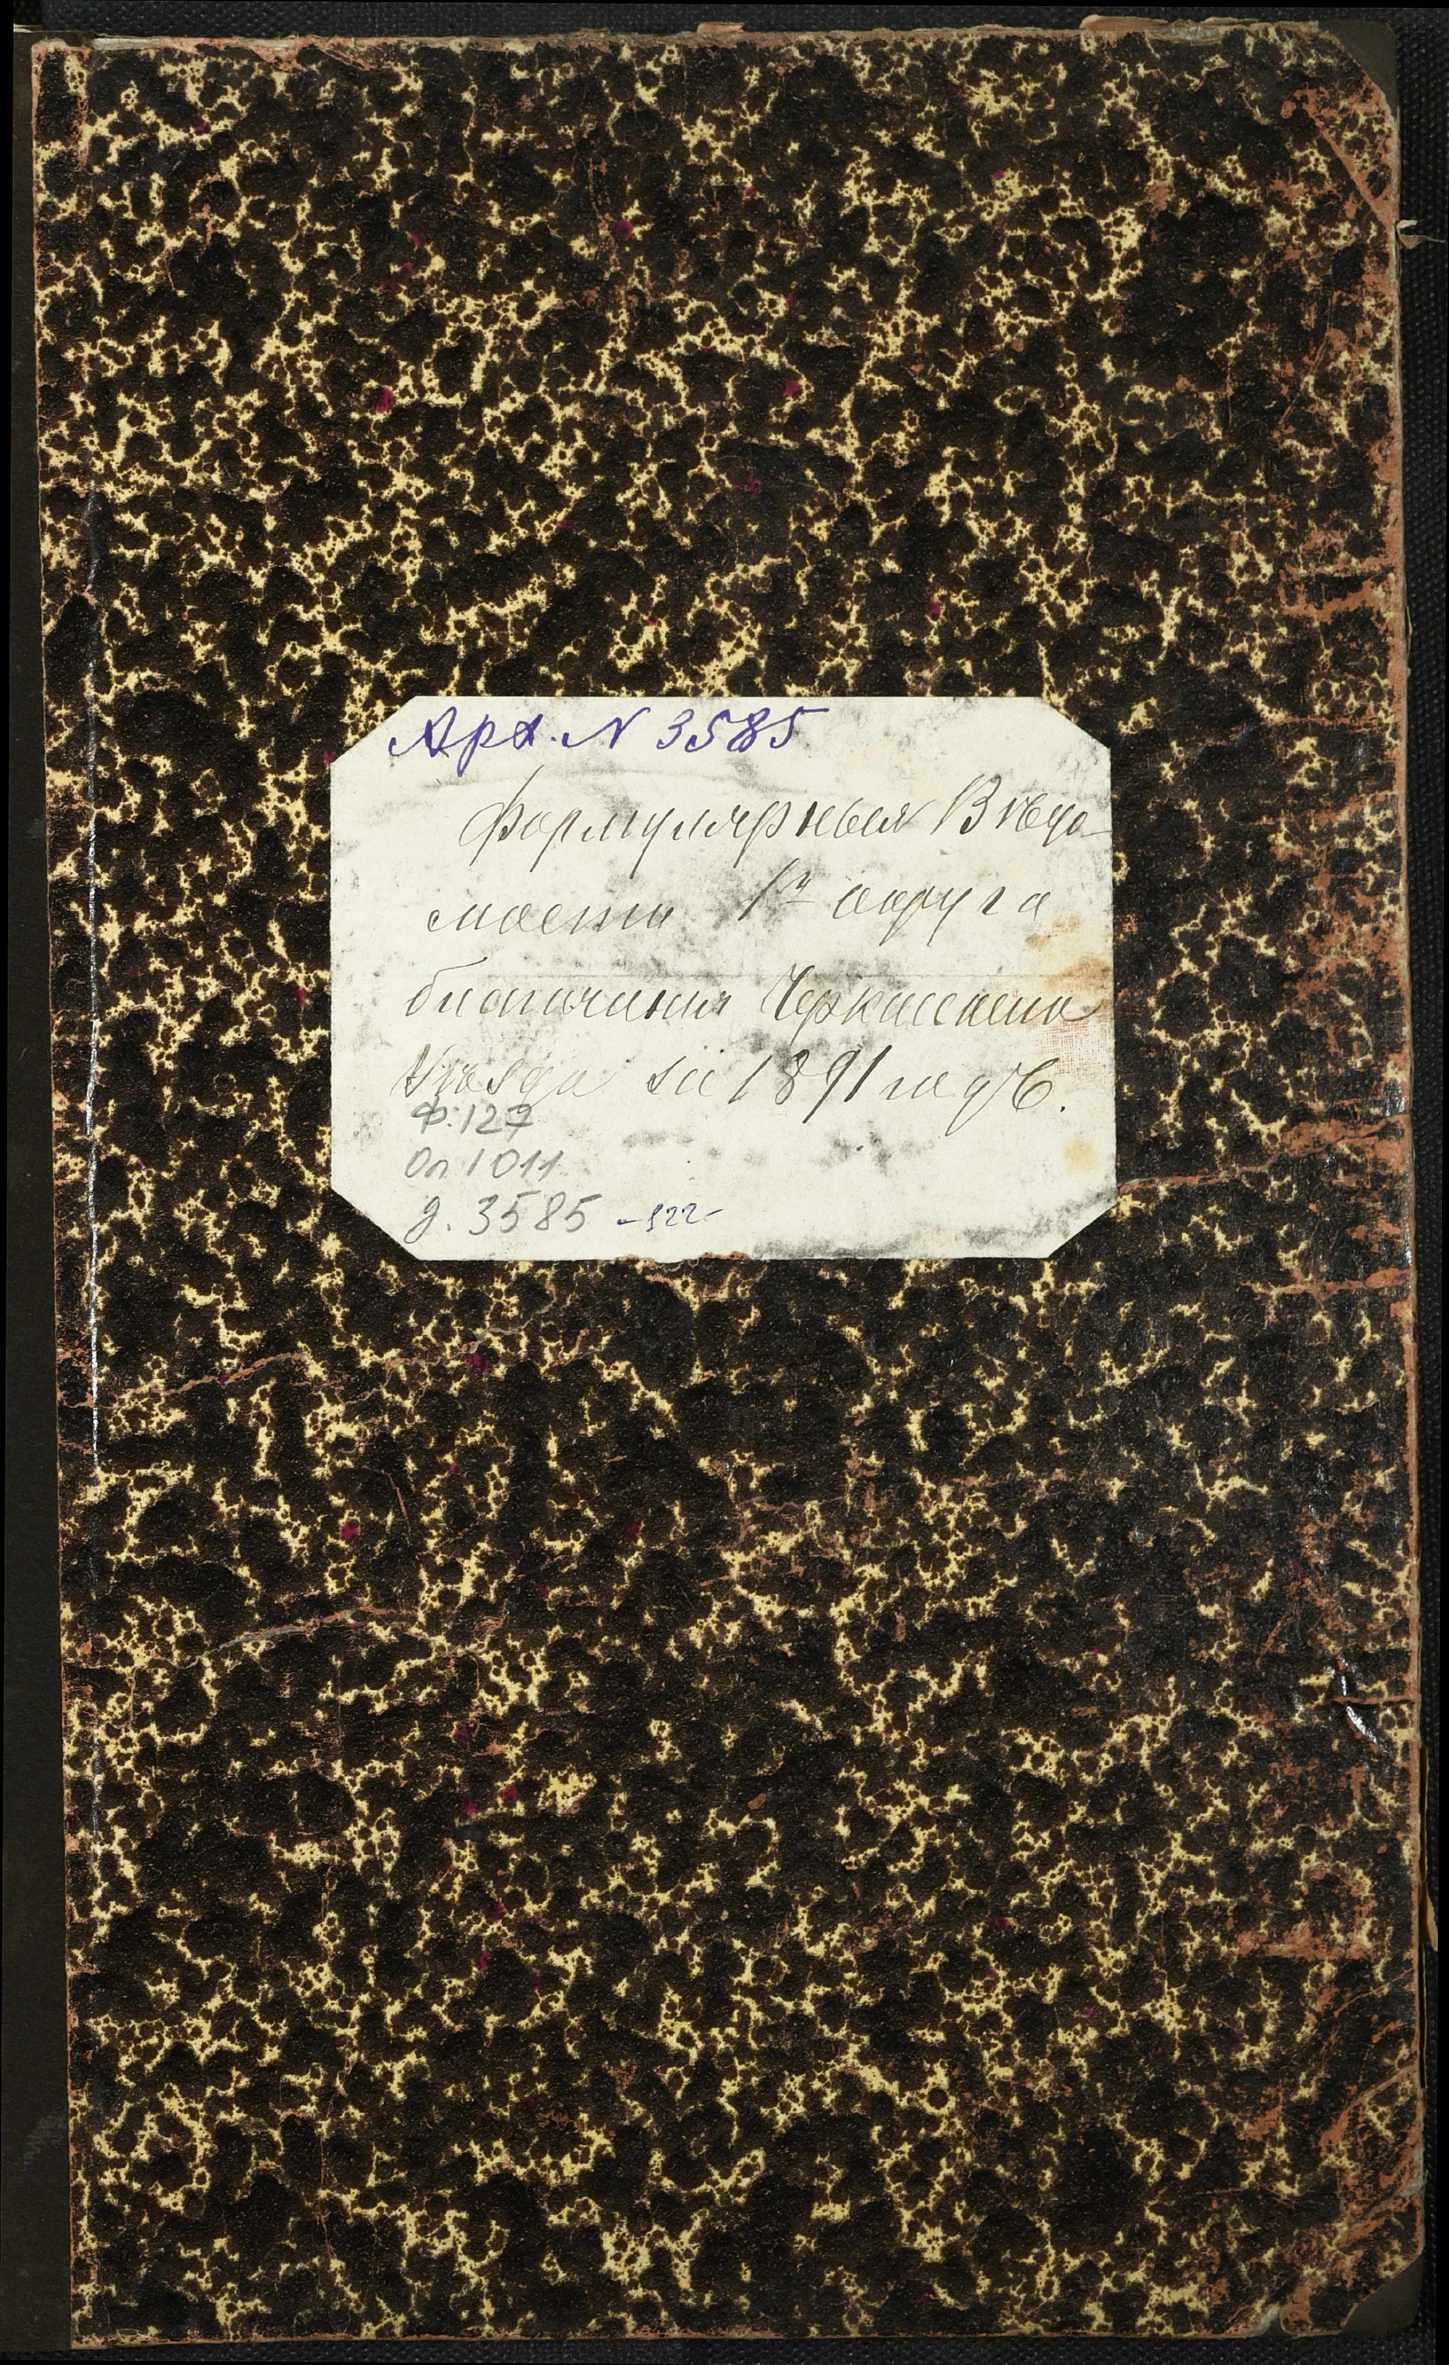 Арх. N 3585
Формулярныя Вѣдо-
мости 1го округа
благочинія Черкасскаго
Уѣзда за 1891 годъ.
Ф. 127
Оп 1011
д. 3585 -122-